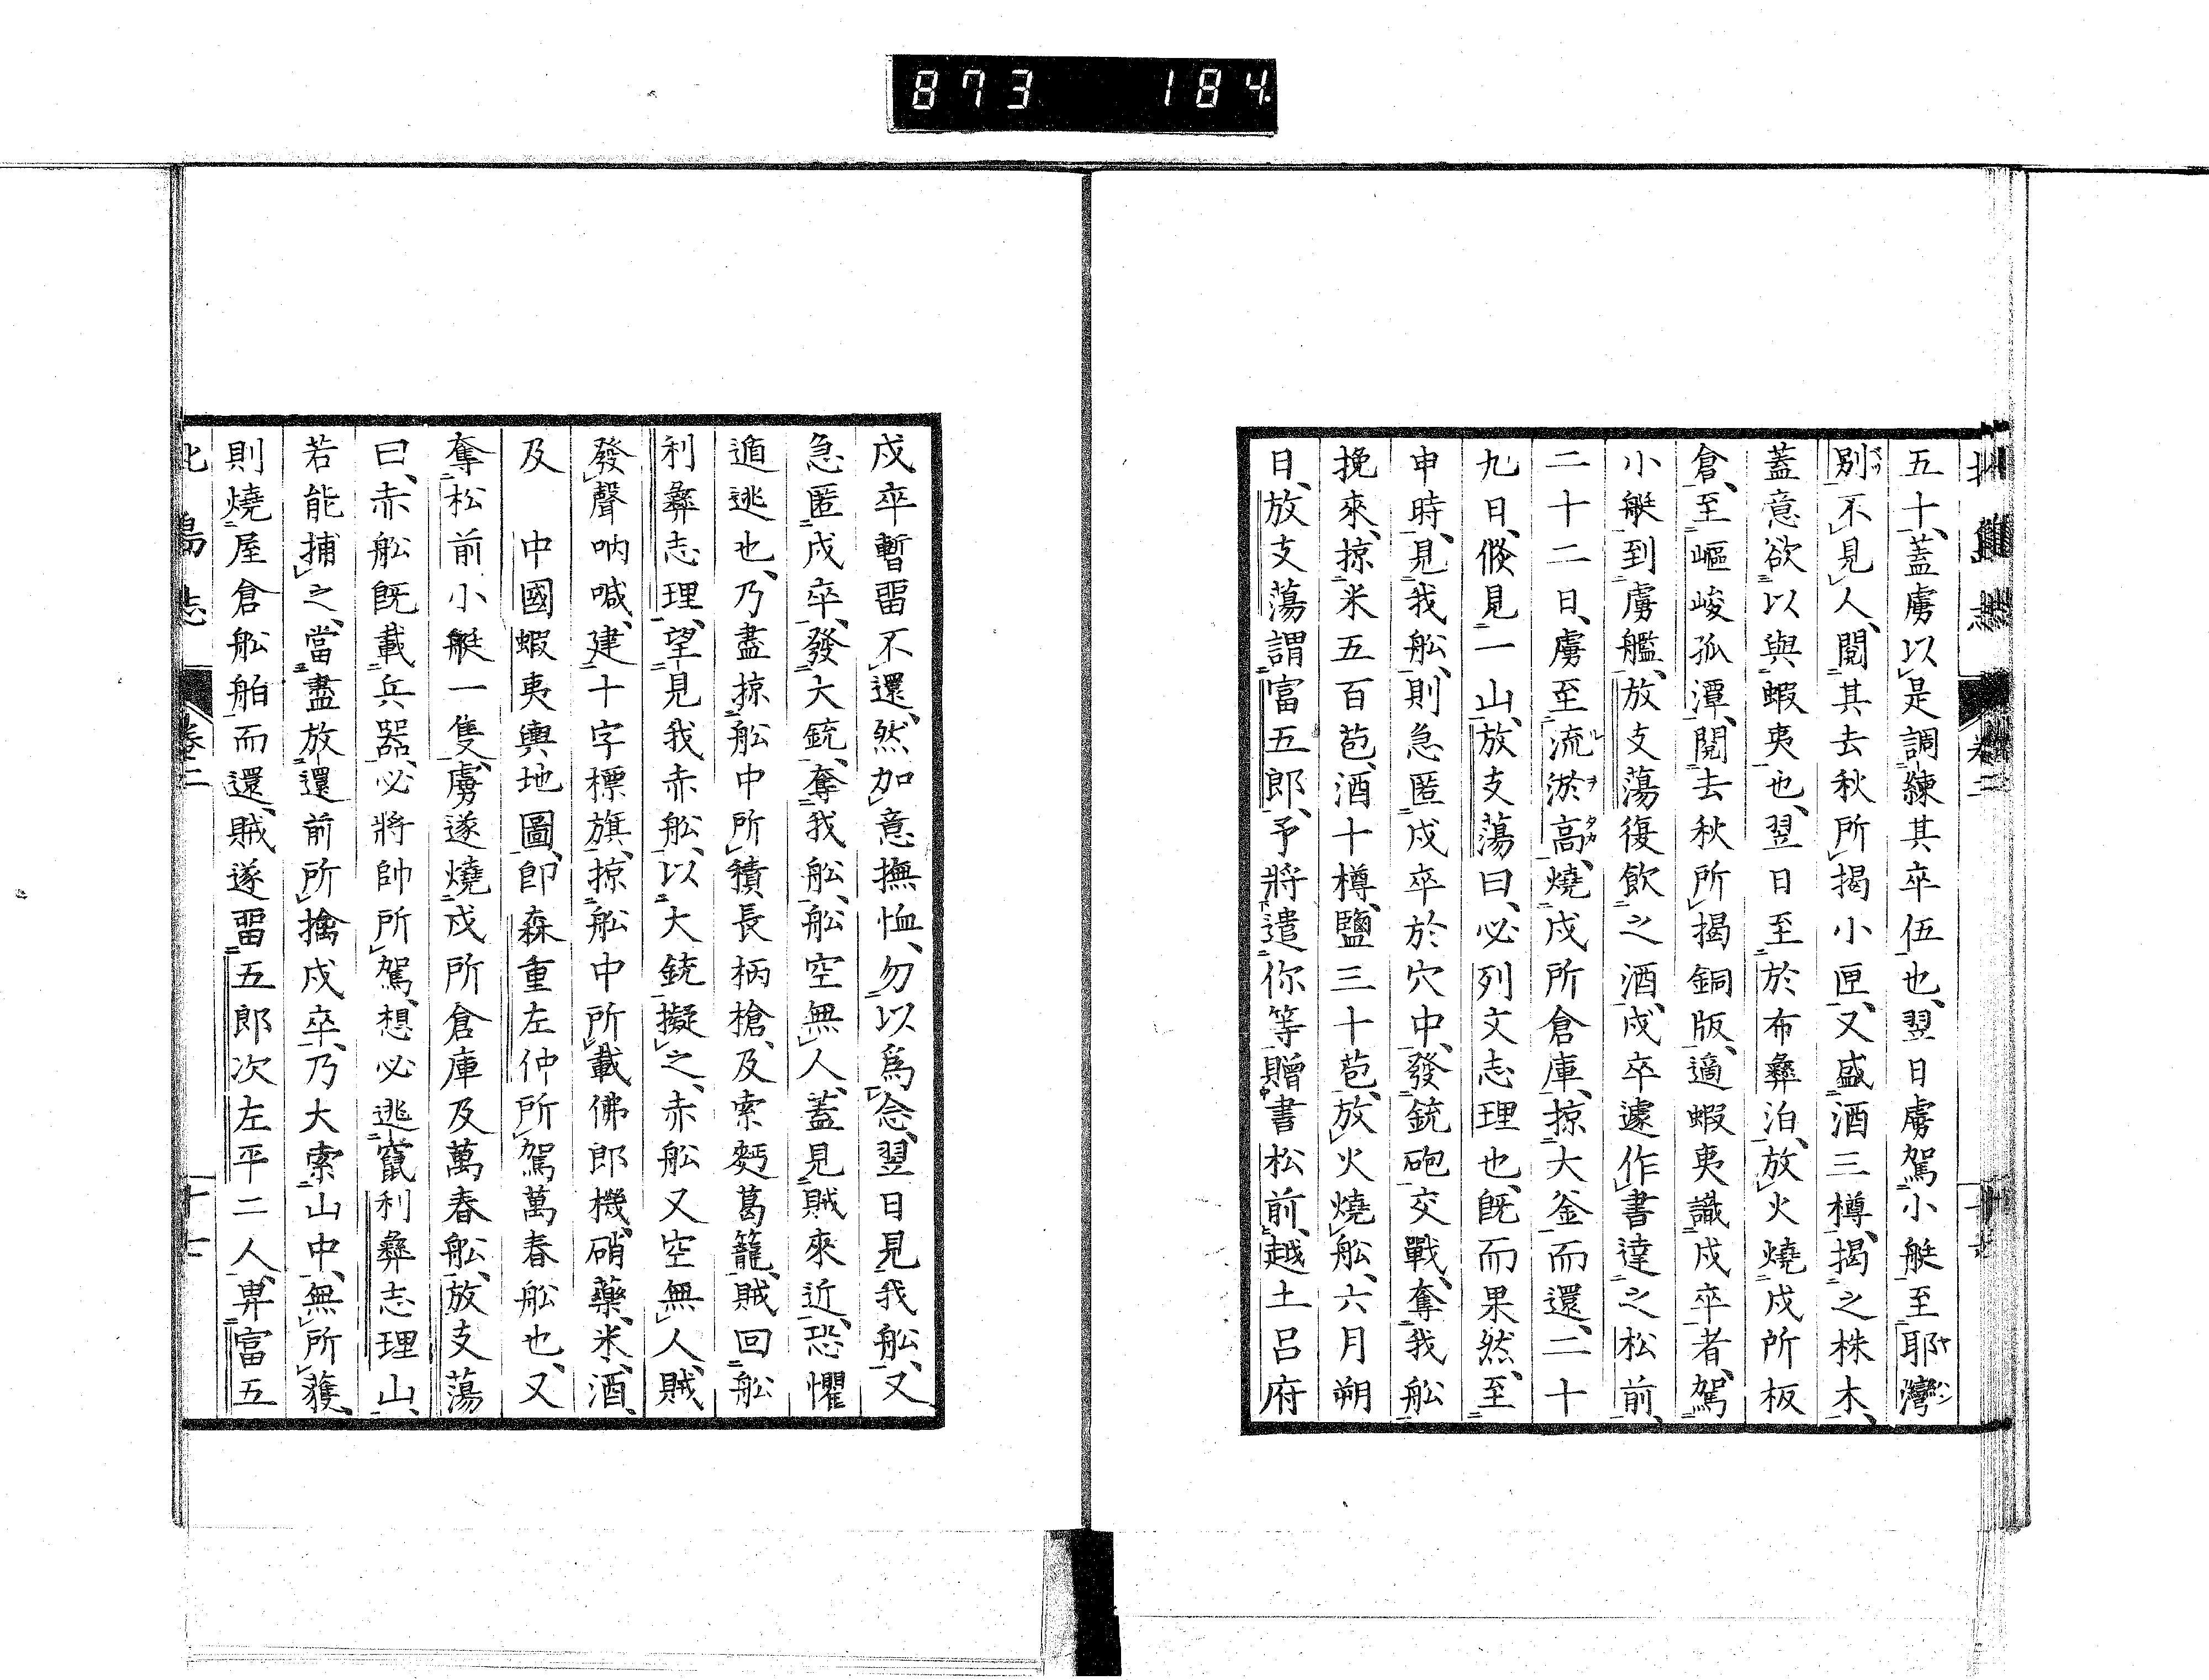 873 184
五十、蓋虜以是調練其卒伍也、翌日虜駕小艇至耶灣
別、不見人、閱其去秋所揭小匣、又盛酒三樽、揭之株木、
蓋意欲以與蝦夷也、翌日至於布彝泊、放火燒戍所板
倉、至嶇峻孤潭、閱去秋所揭銅版、適蝦夷識戍卒者、駕
小艇到虜艦、放支蕩復飲之酒、戍卒遽作書達之松前、
二十二日、虜至流淤高、燒戍所倉庫、掠大釜而還、二十
九日、倐見一山、放支蕩曰、必列文志理也、既而果然、至
申時、見我舩、則急匿戍卒於穴中、發銃砲交戰、奪我舩
挽來、掠米五百苞、酒十樽、鹽三十苞、放火燒舩、六月朔
日、放支蕩謂富五郎、予將遣你等贈書松前、越土呂府
戍卒暫畱不還、然加意撫恤、勿以爲念、翌日見我舩、又
急匿戍卒、發大銃、奪我舩、舩空無人、蓋見賊來近、恐懼
遁逃也、乃盡掠舩中所積長柄槍、及索麪葛籠、賊回舩
利彝志理、望見我赤舩、以大銃擬之、赤舩又空無人、賊
發聲吶喊、建十字標旗、掠舩中所載佛郎機、硝藥、米、酒、
及　中國蝦夷輿地圖、卽森重左仲所駕萬春舩也、又
奪松前小艇一隻、虜遂燒戍所倉庫及萬春舩、放支蕩
曰、赤舩既載兵器、必將帥所駕、想必逃竄利彝志理山、
若能捕之、當盡放還前所擒戍卒、乃大索山中、無所獲、
則燒屋倉舩舶而還、賊遂畱五郎次左平二人、畀富五
北島志 卷二 十七